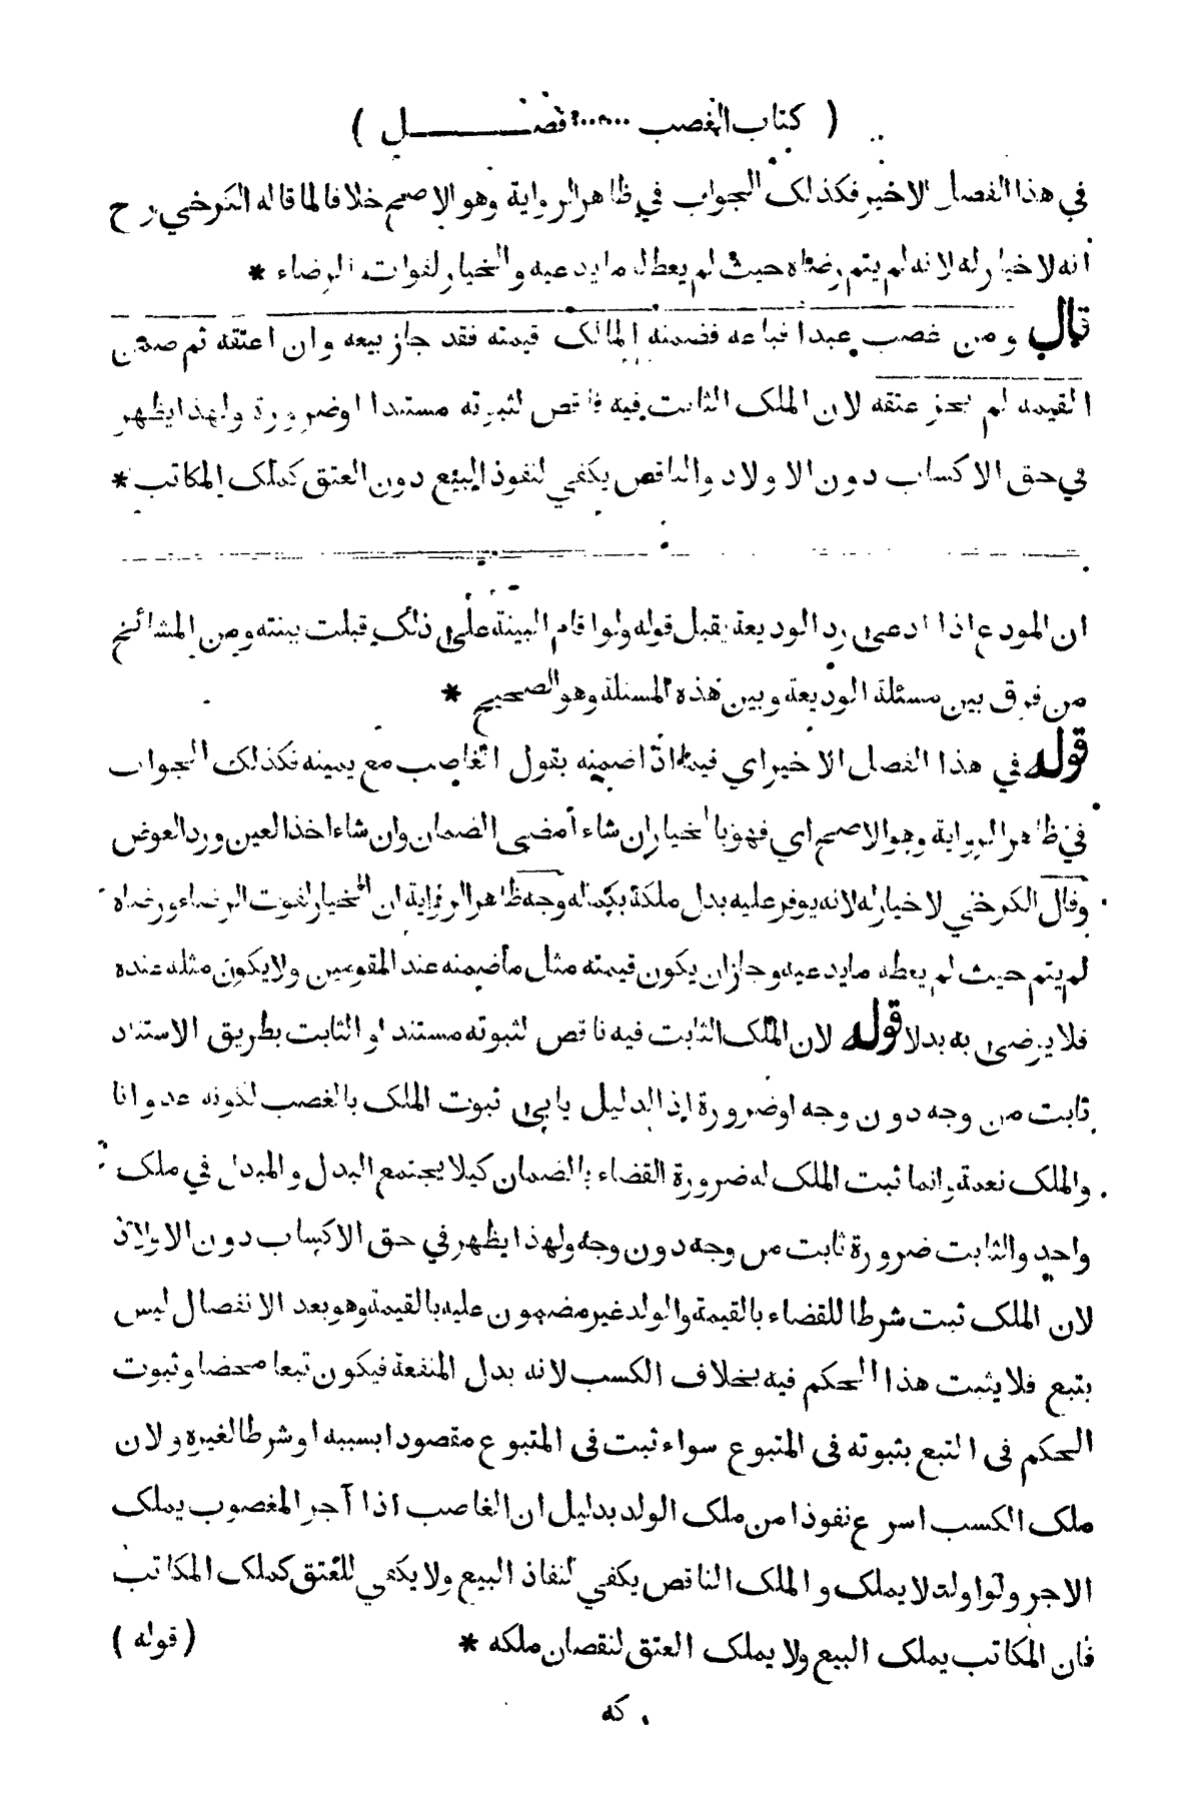 ( كتاب الغصب ..... فصـــــل )
في هذا الفصل الاخير فكذلك الجواب في ظاهر الرواية وهو الاصح خلافا لما قاله الكرخي رح
انه لا خيار له لانه لم يتم رضاه حيث لم يعطه ما يدعيه والخيار لفوات الرضاء *
قال ومن غصب عبدا فباعه فضمنه المالك قيمته فقد جاز بيعه وان اعتقه ثم ضمن
القيمة لم يجز عتقه لان الملك الثابت فيه ناقص لثبوته مستندا او ضرورة ولهذا يظهر
في حق الاكساب دون الاولاد والناقص يكفي لنفوذ البيع دون العتق كملك المكاتب *
ان المودع اذا ادعى رد الوديعة يقبل قوله ولو اقام البينة على ذلك قبلت بينته ومن المشائخ
من فرق بين مسئلة الوديعة وبين هذه المسئلة وهو الصحيح *
قوله في هذا الفصل الاخير اي فيما اذا ضمنه بقول الغاصب مع يمينه فكذلك الجواب
في ظاهر الرواية وهو الاصح اي فهو بالخيار ان شاء أمضى الضمان وان شاء اخذ العين ورد العوض
وقال الكرخي لا خيار له لانه يوفر عليه بدل ملكه بكماله وجه ظاهر الرواية ان الخيار لفوت الرضاء ورضاه
لم يتم حيث لم يعطه ما يدعيه وجاز ان يكون قيمته مثل ما ضمنه عند المقومين ولا يكون مثله عنده
فلا يرضى به بدلا قوله لان الملك الثابت فيه ناقص لثبوته مستندا والثابت بطريق الاستناد
ثابت من وجه دون وجه او ضرورة اذ الدليل يابى ثبوت الملك بالغصب لكونه عدوانا
والملك نعمة وانما ثبت الملك له ضرورة القضاء بالضمان كيلا يجتمع البدل والمبدل في ملك
واحد والثابت ضرورة ثابت من وجه دون وجه ولهذا يظهر في حق الاكساب دون الاولاد
لان الملك ثبت شرطا للقضاء بالقيمة والولد غير مضمون عليه بالقيمة وهو بعد الانفصال ليس
بتبع فلا يثبت هذا الحكم فيه بخلاف الكسب لانه بدل المنفعة فيكون تبعا محضا وثبوت
الحكم فى التبع بثبوته فى المتبوع سواء ثبت فى المتبوع مقصودا بسببه او شرطا لغيره ولان
ملك الكسب اسرع نفوذا من ملك الولد بدليل ان الغاصب اذا آجر المغصوب يملك
الاجر ولو اولد لا يملك والملك الناقص يكفي لنفاذ البيع ولا يكفي للعتق كملك المكاتب
فان المكاتب يملك البيع ولا يملك العتق لنقصان ملكه *
( قوله )